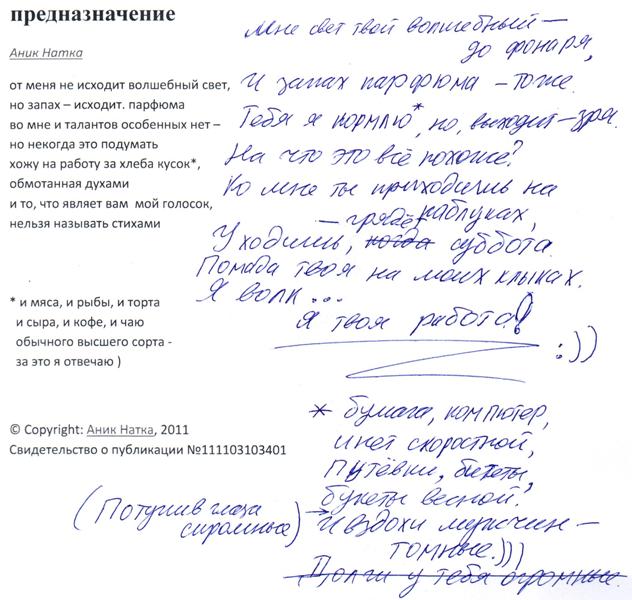 предназначение
Аник Натка
от меня не исходит волшебный свет,
но запах – исходит. парфюма
во мне и талантов особенных нет –
но некогда это подумать
хожу на работу за хлеба кусок*,
обмотанная духами
и то, что являет вам  мой голосок,
нельзя называть стихами
* и мяса, и рыбы, и торта
и сыра, и кофе, и чаю
обычного высшего сорта -
за это я отвечаю )
© Copyright: Аник Натка, 2011
Свидетельство о публикации №111103103401
Мне свет твой волшебный –
до фонаря,
И запах парфюма – тоже.
Тебя я кормлю*, но, выходит – зря.
На что это всё похоже?
Ко мне ты приходишь на
каблуках,
Уходишь, – грядёт когда суббота.
Помада твоя на моих клыках.
Я волк...
Я твоя работа!
:))
* бумага, компютер,
инет скоростной,
Путёвки, билеты,
букеты весной.
(Потупив глаза
скромные) →
И вздохи мужчин –
томные.)))
Долги у тебя огромные.